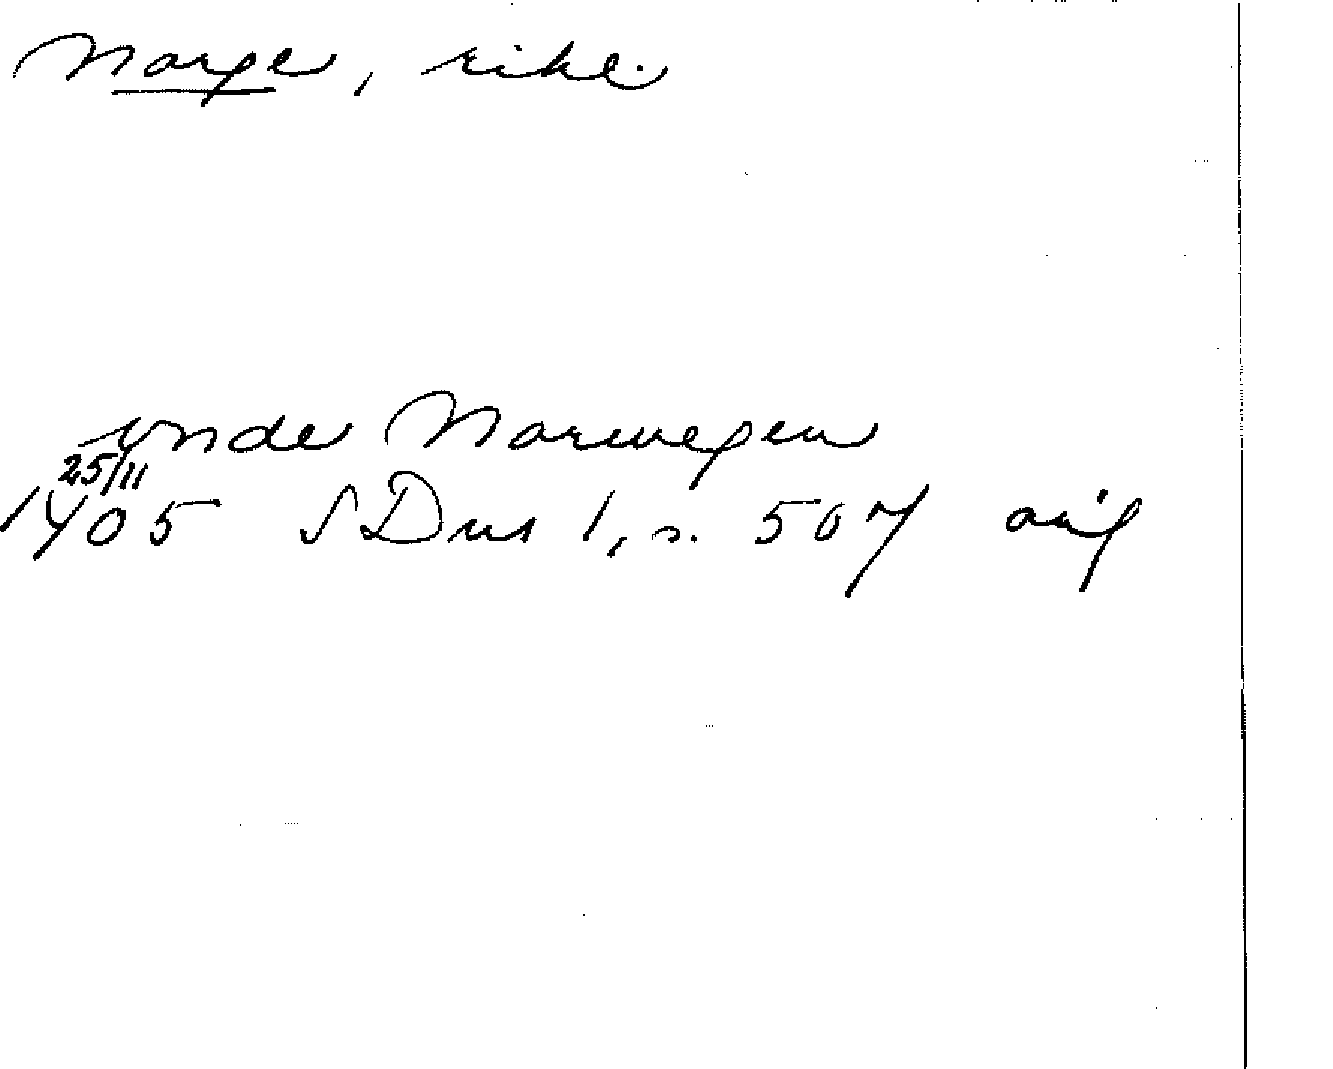 Norge, rike.
vnde Norwegen
25/11
1405 SDns 1, s. 507 avg